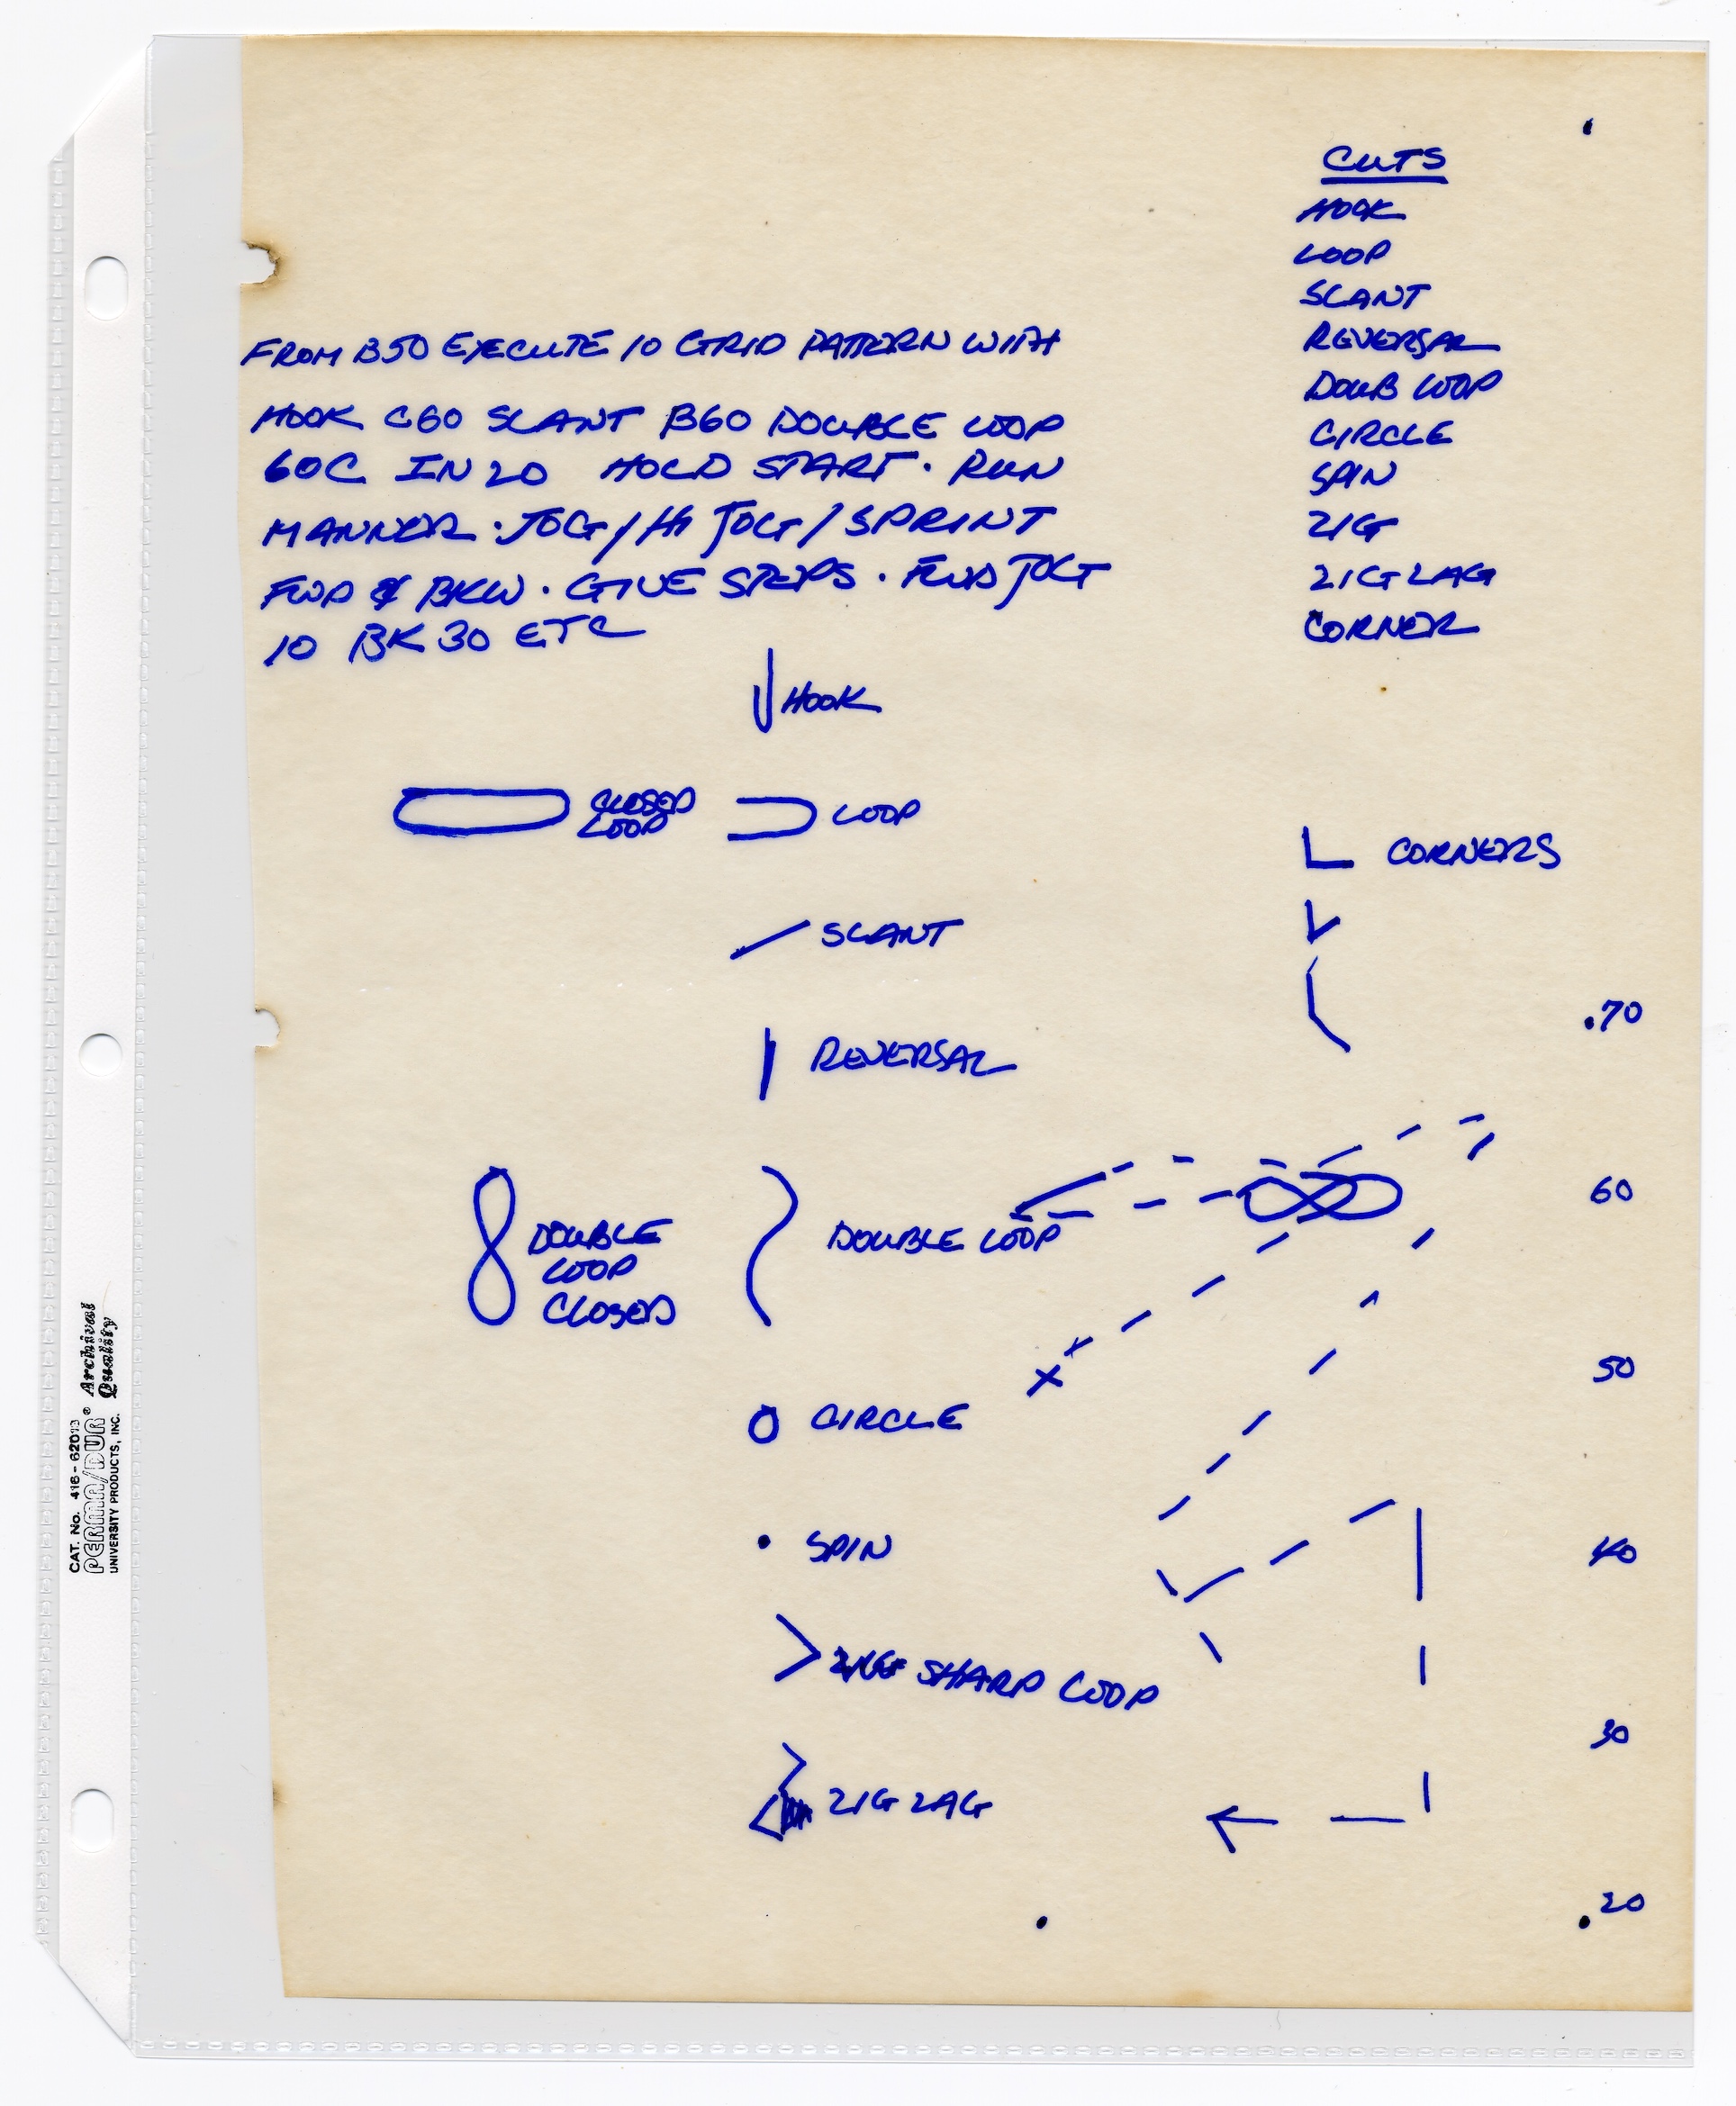 CUTS
HOOK
LOOP
SLANT
REVERSAL
DOUB LOOP
CIRCLE
SPIN
ZIG
ZIG ZAG
CORNER
FROM B50 EXECUTE 10 GRID PATTERN WITH
HOOK C60 SLANT B60 DOUBLE LOOP
60C IN 20 HOLD START. RUN
MANNER. JOG/HI JOG/SPRINT
FWD & BKW. GIVE STEPS. FWD JOG
10 BK 30 ETC
HOOK
CLOSED
LOOP
LOOP
CORNERS
SLANT
.70
REVERSAL
60
DOUBLE
LOOP
CLOSED
DOUBLE LOOP
50
CIRCLE
SPIN
40
SHARP LOOP
30
ZIG ZAG
.20
CAT. No. 416-62013
PERMA/DUR® Archival
Quality
UNIVERSITY PRODUCTS, INC.